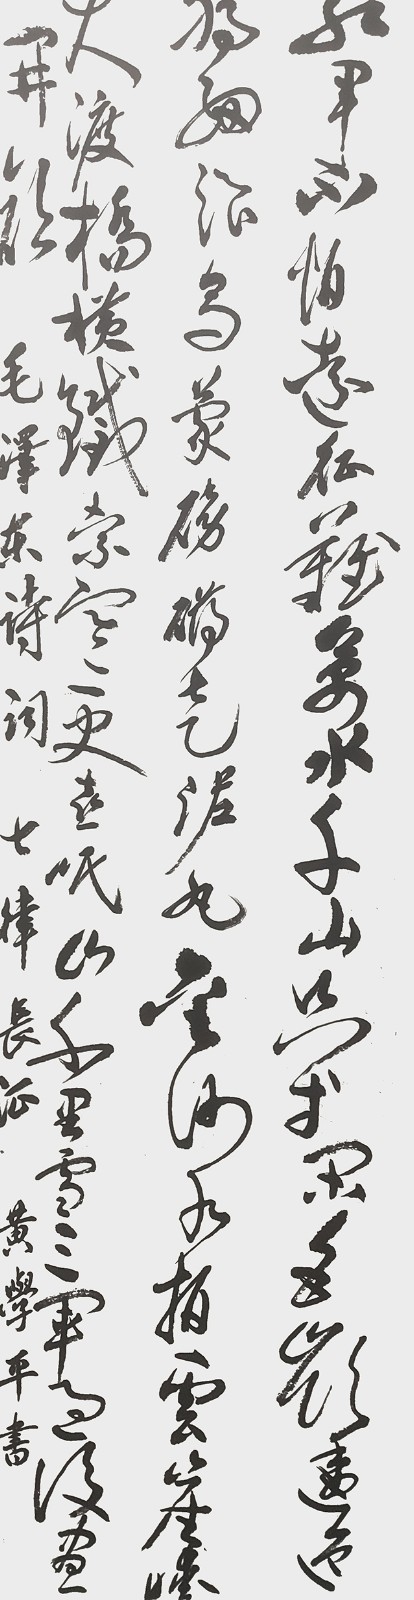 紅軍不怕遠征難萬水千山只等閑五嶺逶迤
騰細浪烏蒙磅礴走泥丸金沙水拍雲崖暖
大渡橋橫鐵索寒更喜岷山千里雪三軍過後盡
开顏 毛澤東詩詞 七律 長征 黃學平書